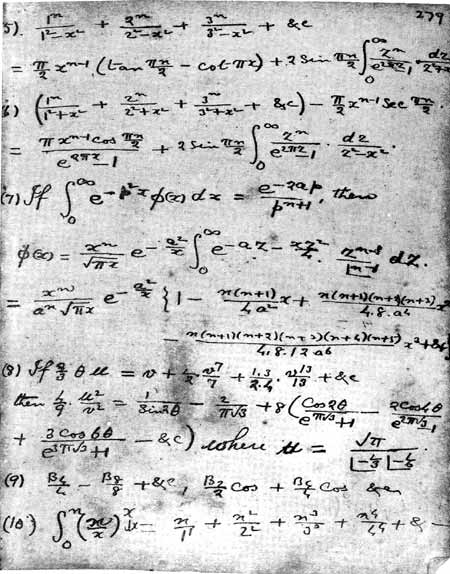 279
5). 1^n/(1²-x²) + 2^n/(2²-x²) + 3^n/(3²-x²) + &c
= π/2 x^(n-1) (tan πn/2 - cot πx) + 2 sin πn/2 ∫_0^∞ z^n/(e^(2πz)-1) · dz/(z²+x²)
6) (1^n/(1²+x²) + 2^n/(2²+x²) + 3^n/(3²+x²) + &c) - π/2 x^(n-1) sec πn/2.
= πx^(n-1) cos πn/2 /(e^(2πx)-1) + 2 sin πn/2 ∫_0^∞ z^n/(e^(2πz)-1) · dz/(z²-x²).
(7) If ∫_0^∞ e^(-p²x) φ(x) dx = e^(-2ap)/p^(n+1), then
φ(x) = x^n/√(πx) e^(-a²/x) ∫_0^∞ e^(-az - xz²/4) z^(n-1)/|n-1 dz.
= x^n/(a^n √(πx)) e^(-a²/x) {1 - n(n+1)/(4a²) x + n(n+1)(n+2)(n+3)/(4.8.a4) x²
- n(n+1)(n+2)(n+3)(n+4)(n+5)/(4.8.12 a6) x³ + &c}
(8) If θμ = v + 1/2 v^7/7 + 1.3/2.4 v^13/13 + &c
then μ²/v² = 1/sin²θ - 2/(π√3) + 8 (cos 2θ/(e^(π√3)+1) - 2 cos 4θ/(e^(2π√3)-1)
+ 3 cos 6θ/(e^(3π√3)+1) - &c) where μ = √π/
(9) - + &c, cos + cos &c
(10) ∫_0^n (n/x)^x dx = n/1^1 + n²/2² + n³/3³ + n4/44 + &